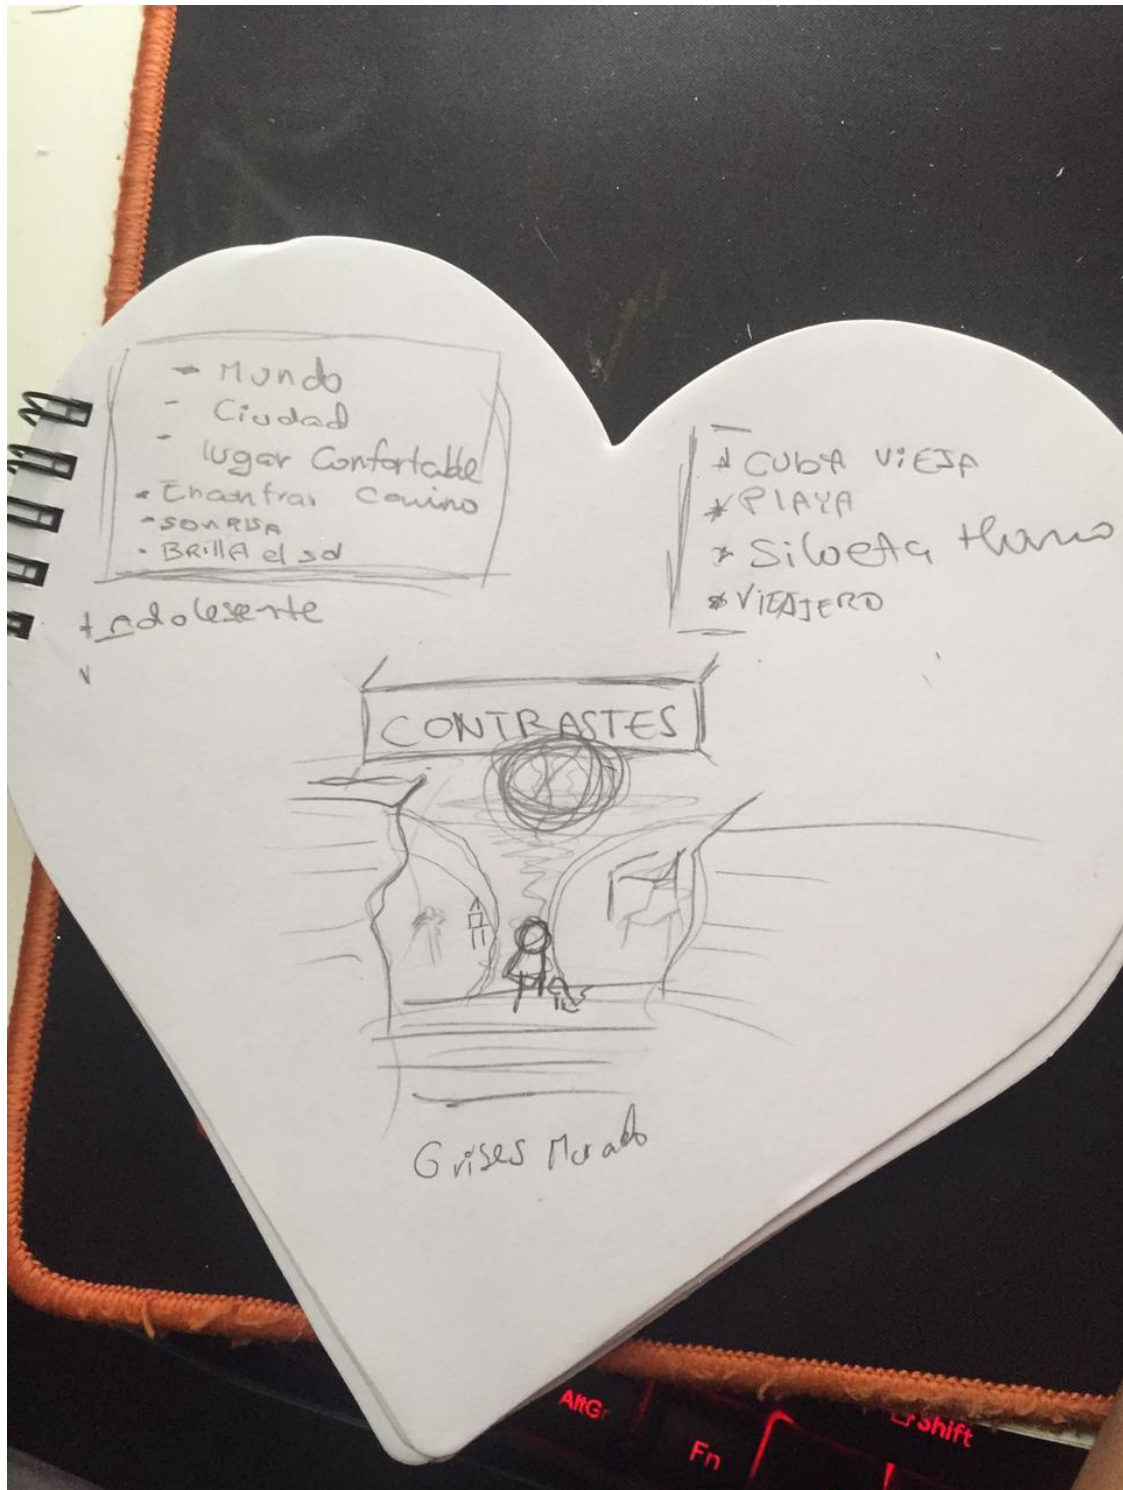 - Mundo
- Ciudad
- lugar Confortable
- Encontrar Camino
- SONRISA
- BRIllA el sol
+ Adolesente
* CUBA VIEJA
* PlAYA
* Silueta
* VIEAJERO
CONTRASTES
Grises Morado
AltGr
Fn
Shift